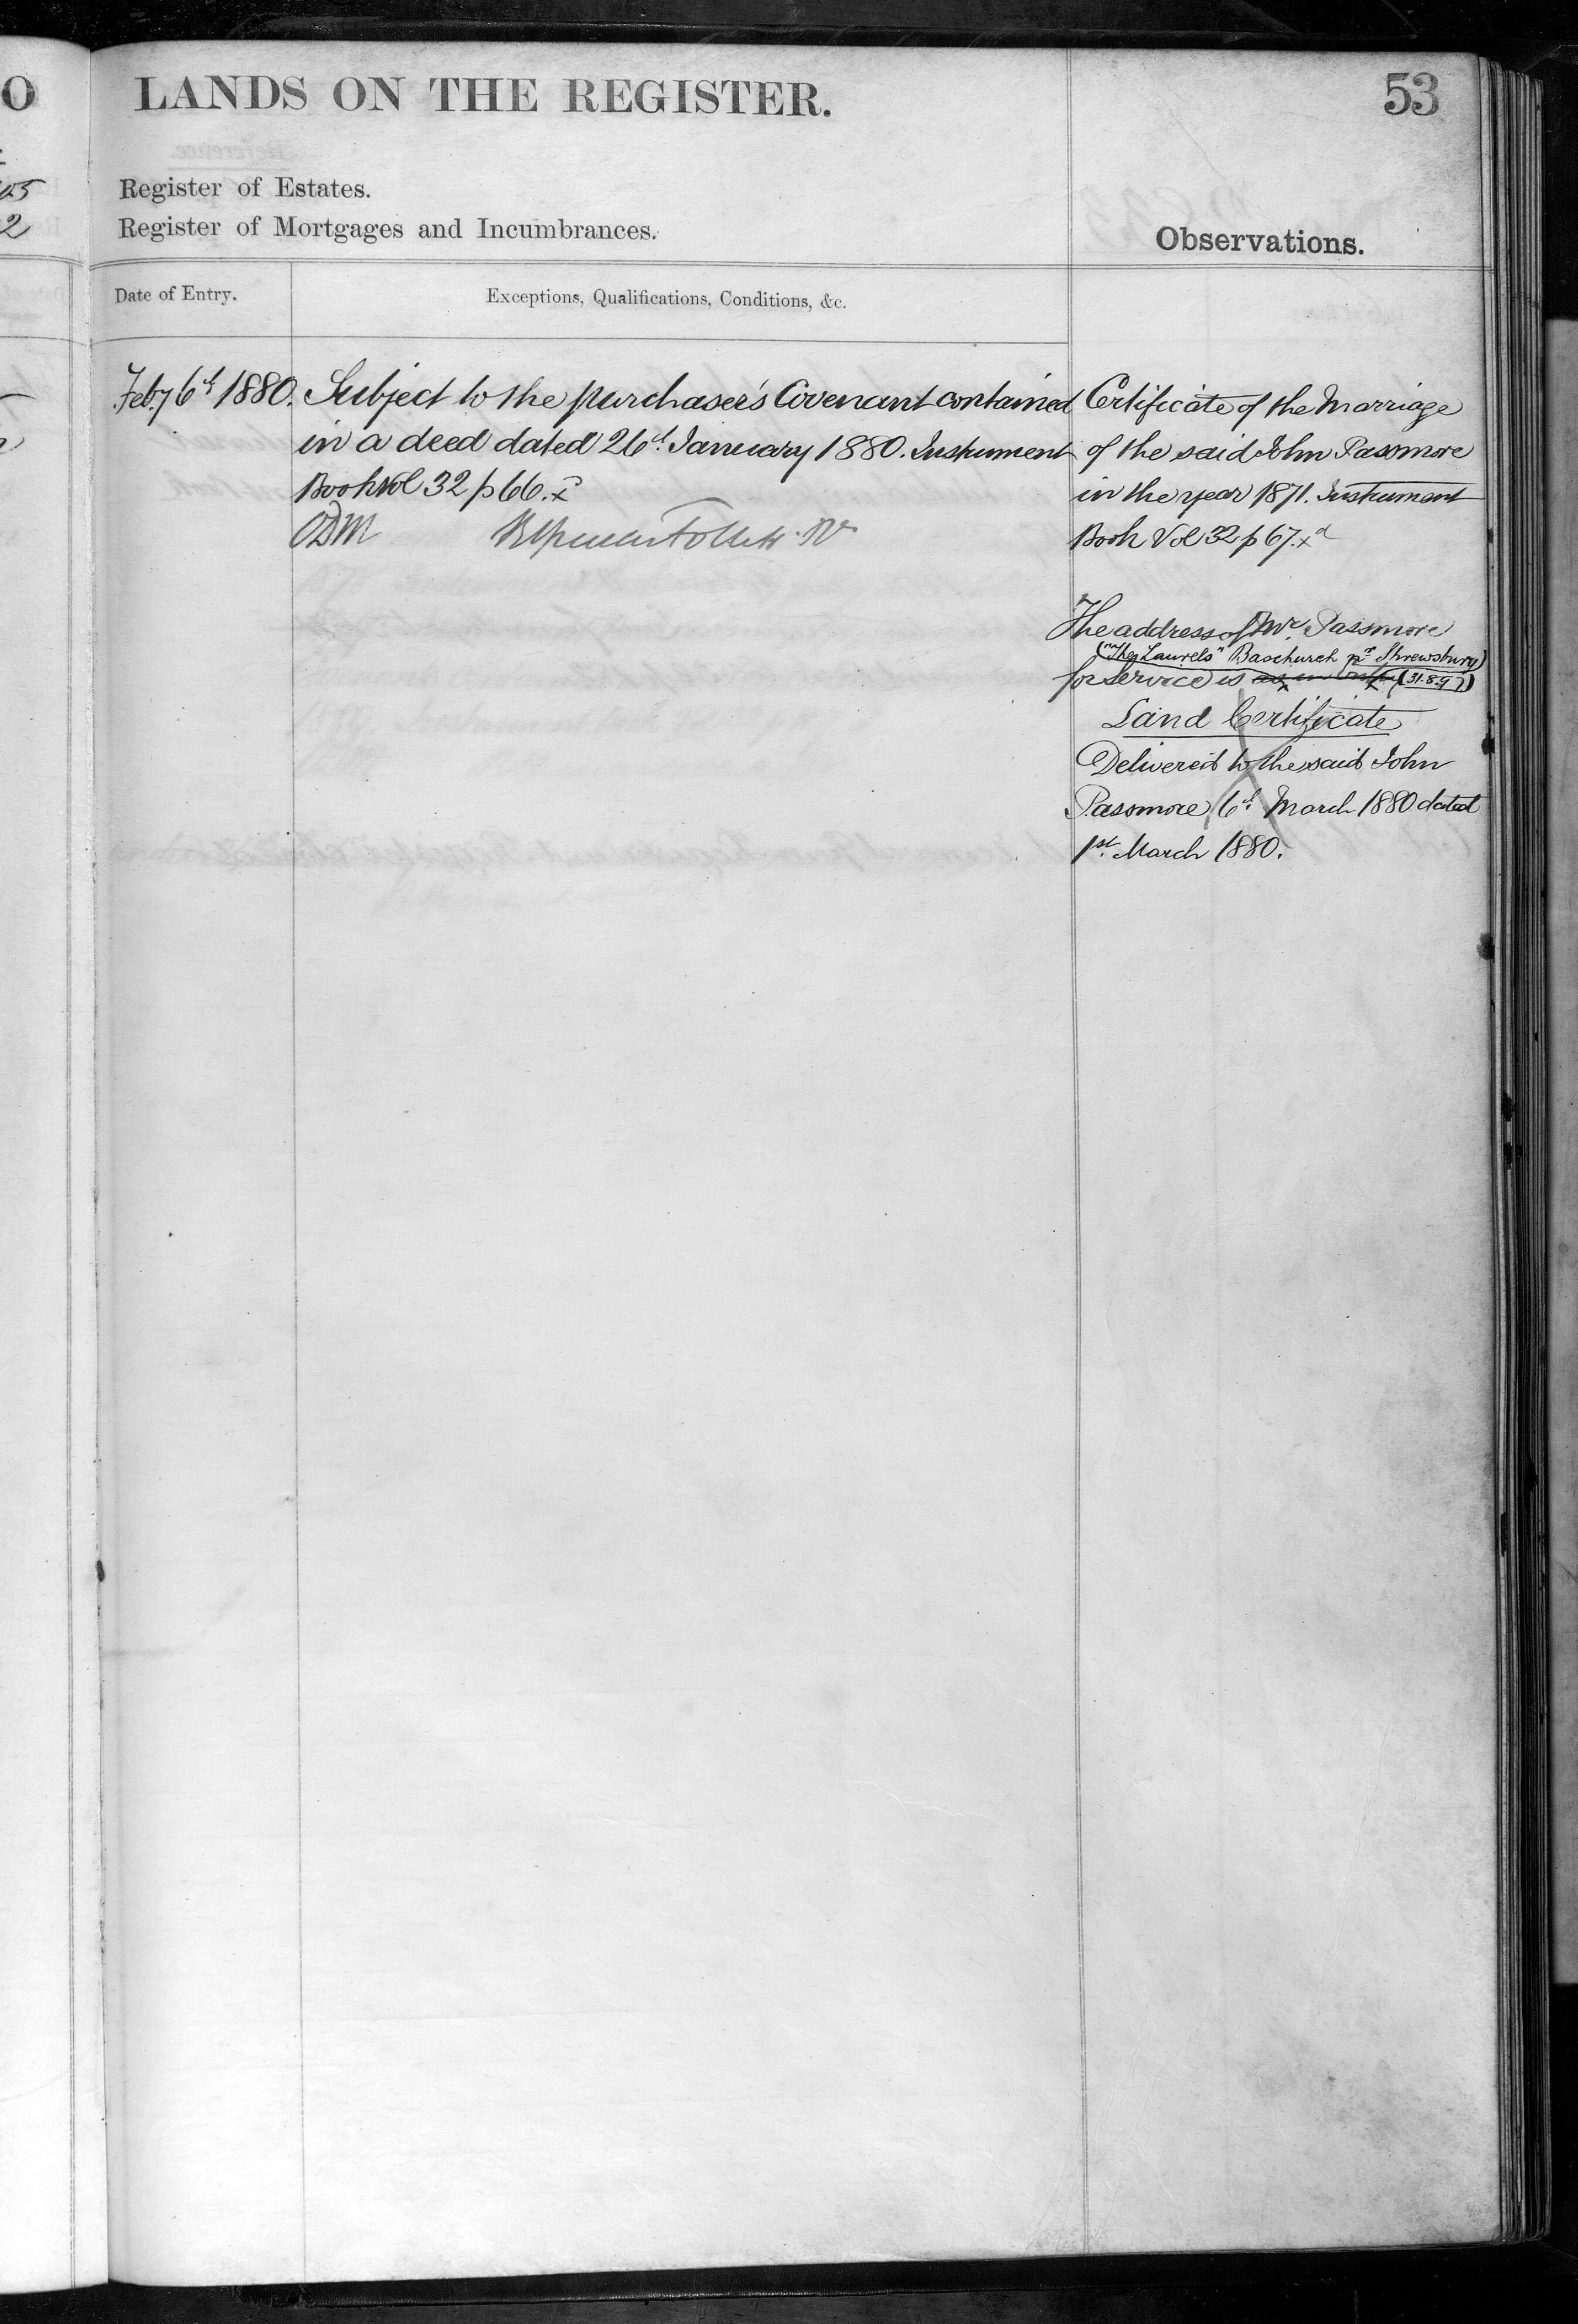 LANDS ON THE REGISTER.
53
Register of Estates.
Register of Mortgages and Incumbrances.
Observations.
Date of Entry.
Exceptions, Qualifications, Conditions, &c.
Feby 6th 1880.
Subject to the purchaser's Covenant contained
in a deed dated 26th January 1880. Instrument
Book Vol 32 p 66. x
ODM
Certificate of the Marriage
of the said John Passmore
in the year 1871. Instrument
Book Vol 32 p 67. x
The address of Mr. Passmore
("The Laurels" Baschurch nr Shrewsbury)
for service is as in (31.8.97)
Land Certificate
Delivered to the said John
Passmore 6th March 1880 dated
1st March 1880.
O
2